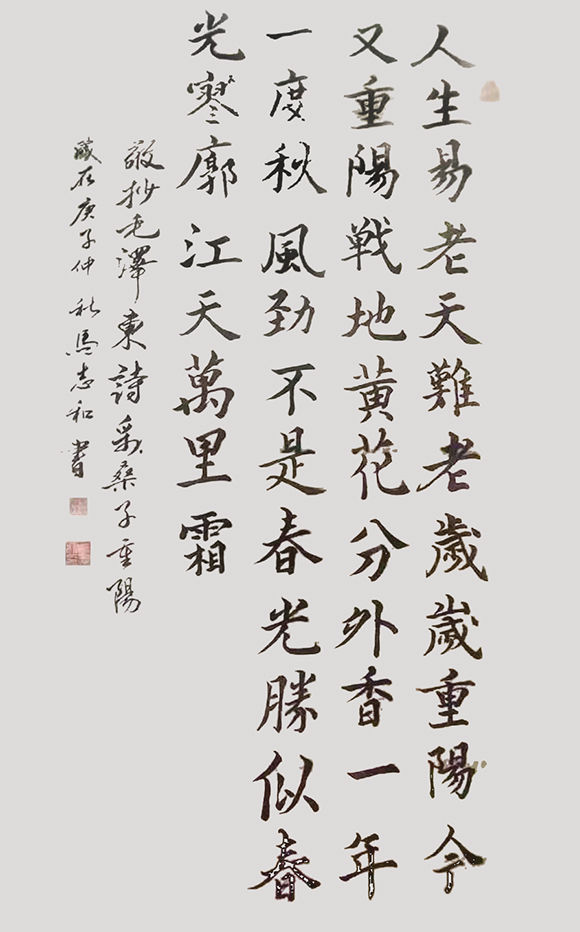 人生易老天難老歲歲重陽今
又重陽戰地黃花分外香一年
一度秋風勁不是春光勝似春
光寥廓江天萬里霜
敬抄毛澤東詩采桑子重陽
歲在庚子仲秋馮志和書